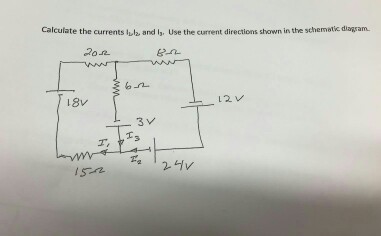 Calculate the currents I₁,I₂, and I₃. Use the current directions shown in the schematic diagram.
20Ω 8Ω
6Ω
18V 12V
3V
I₁ I₃
I₂
15Ω 24V